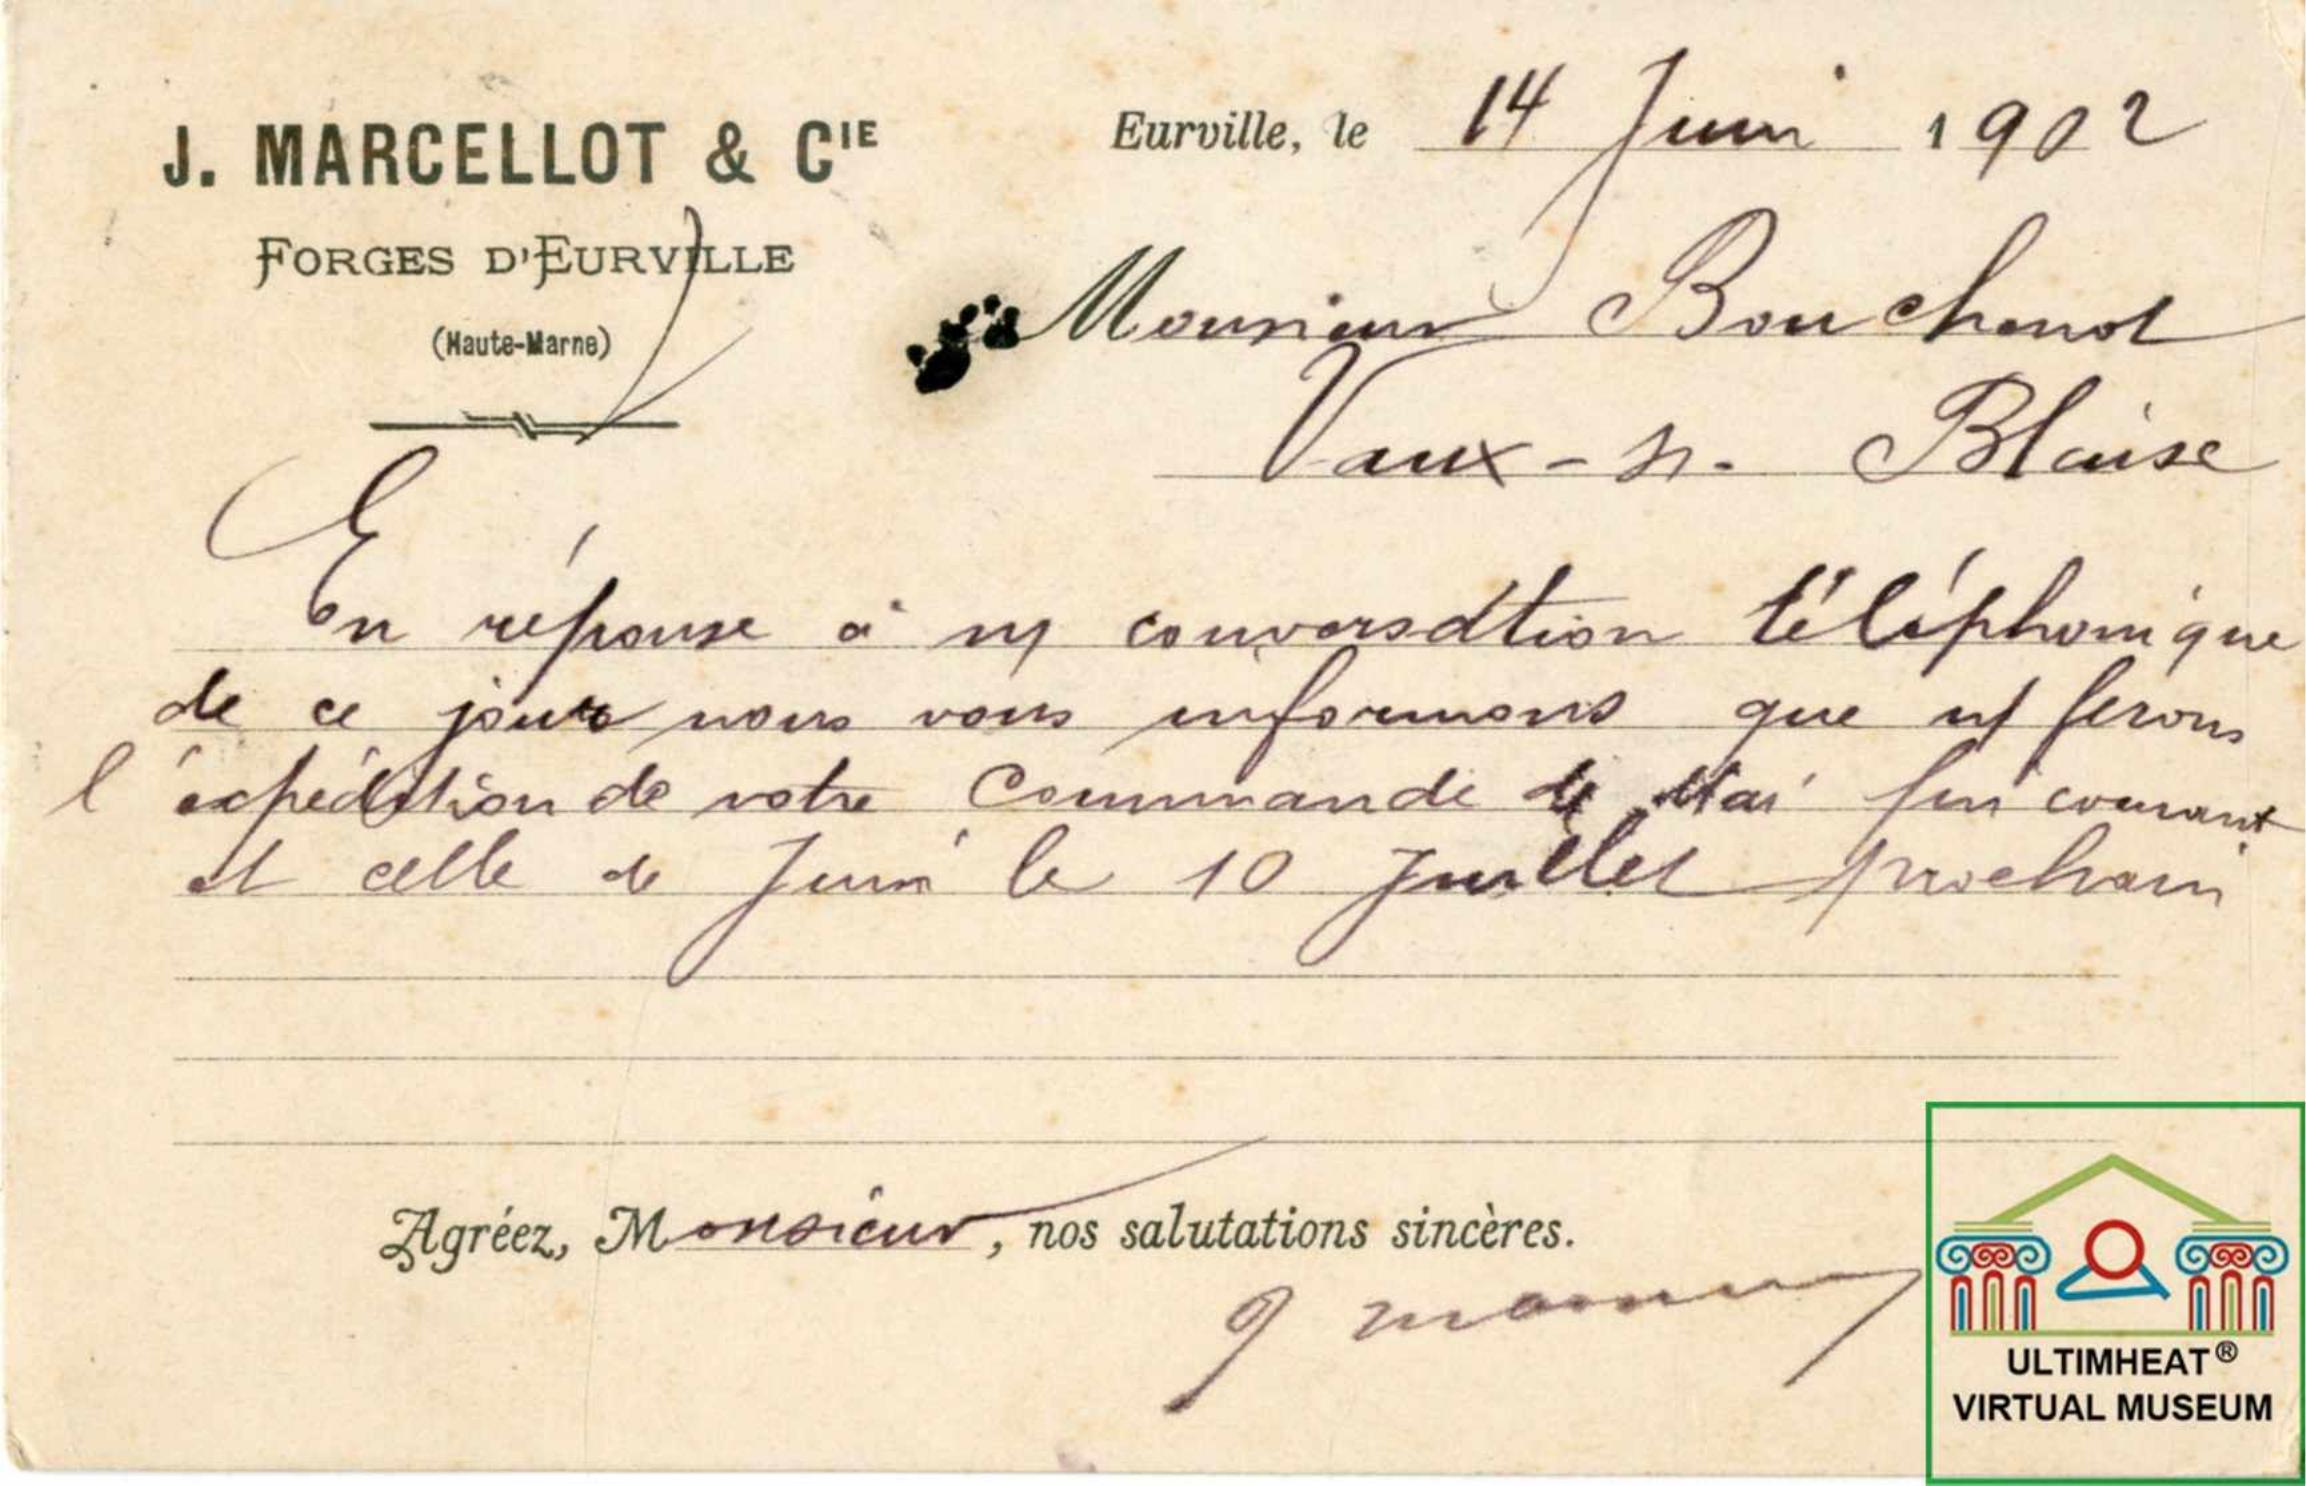 J. MARCELLOT & CIE
FORGES D'EURVILLE
(Haute-Marne)
Eurville, le 14 Juin 1902
Monsieur Bouchenot
Vaux-s/.- Blaise
En réponse à n/ conversation téléphonique
de ce jour nous vous informons que n/ ferons
l'expédition de votre Commande de Mai fin courant
et celle de Juin le 10 Juillet prochain
Agréez, Monsieur, nos salutations sincères.
ULTIMHEAT®
VIRTUAL MUSEUM